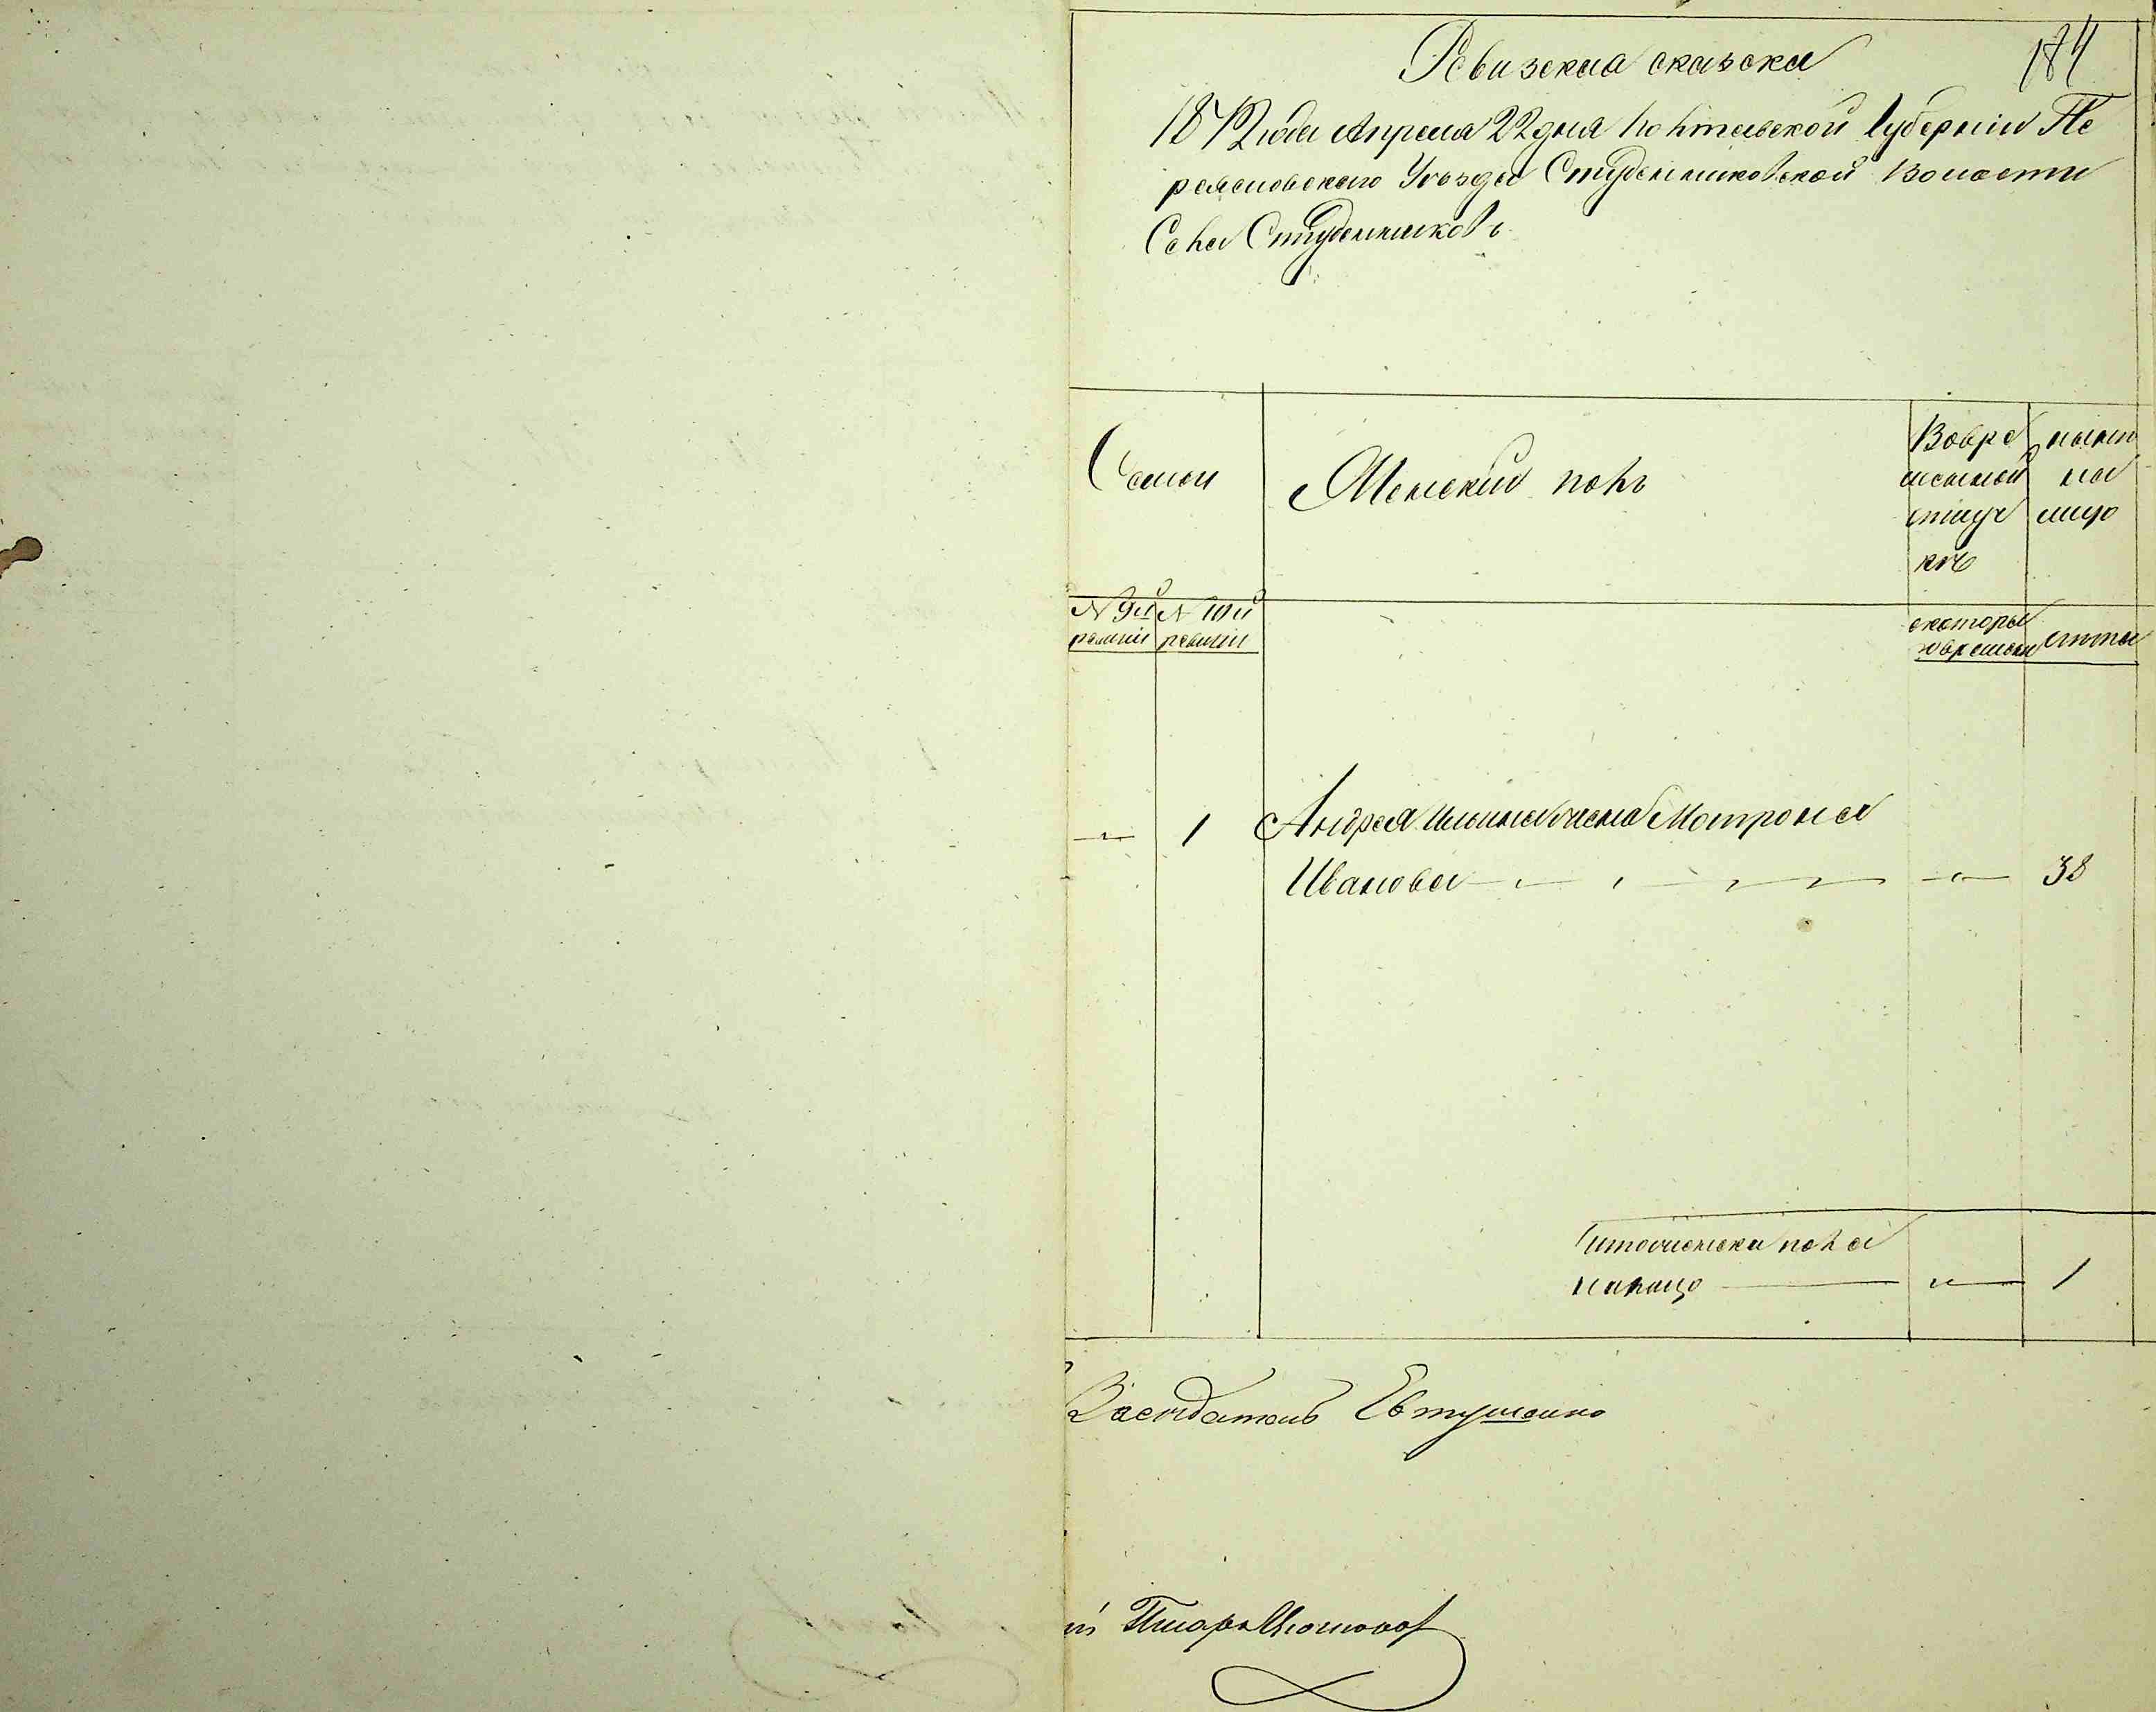 184
Ревизская сказска
18 года Апреля 22 дня Полтавской Губернии Пе
реясловскаго Уѣзда Студенниковской Волости
Села Студенниковъ
Семьи
Женский полъ
Вовре
менной
отлуч
кѣ
нынѣ
на
лицо
N 9й N 10й
ревизіи ревизіи
скоторы
времени лѣта
— 1 Андрея Ильина жена Матрона
Иванова — — 38
Итого женска пола
налицо — — 1
Засѣдатель Евтушенко
Писарь